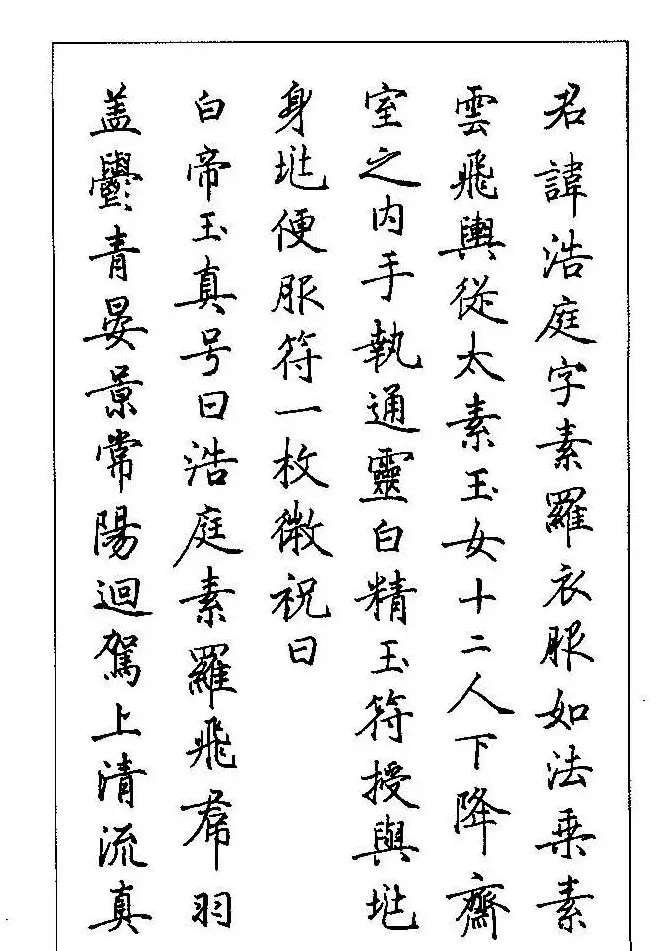 君諱浩庭字素羅衣服如法乗素
雲飛輿從太素玉女十二人下降齋
室之内手執通靈白精玉符授與垗
身垗便服符一枚微祝曰
白帝玉真号曰浩庭素羅飛帬羽
盖鬱青晏景常陽迴駕上清流真